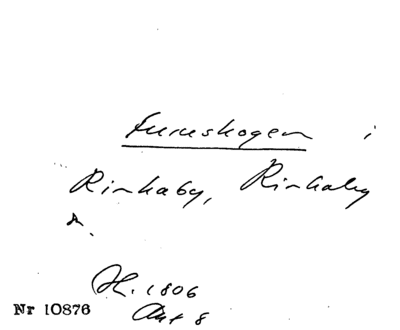 Furuskogen i
Rinkaby, Rinkaby
H. 1806
Akt 8
Nr 10876